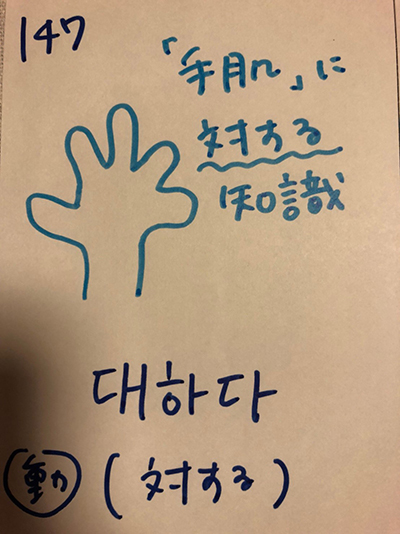 147
「手肌」に
対する
知識
대하다
動 (対する)